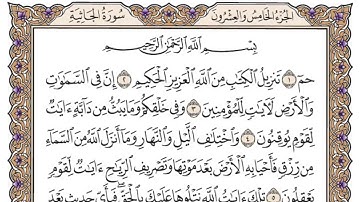 الجزء الخامس والعشرون
سورة الجاثية
بِسْمِ اللَّهِ الرَّحْمَٰنِ الرَّحِيمِ
حمٓ ١ تَنزِيلُ الْكِتَابِ مِنَ اللَّهِ الْعَزِيزِ الْحَكِيمِ ٢ إِنَّ فِي السَّمَاوَاتِ
وَالْأَرْضِ لَآيَاتٍ لِّلْمُؤْمِنِينَ ٣ وَفِي خَلْقِكُمْ وَمَا يَبُثُّ مِن دَابَّةٍ آيَاتٌ
لِّقَوْمٍ يُوقِنُونَ ٤ وَاخْتِلَافِ اللَّيْلِ وَالنَّهَارِ وَمَا أَنزَلَ اللَّهُ مِنَ السَّمَاءِ
مِن رِّزْقٍ فَأَحْيَا بِهِ الْأَرْضَ بَعْدَ مَوْتِهَا وَتَصْرِيفِ الرِّيَاحِ آيَاتٌ لِّقَوْمٍ
يَعْقِلُونَ ٥ تِلْكَ آيَاتُ اللَّهِ نَتْلُوهَا عَلَيْكَ بِالْحَقِّ ۖ فَبِأَيِّ حَدِيثٍ بَعْدَ